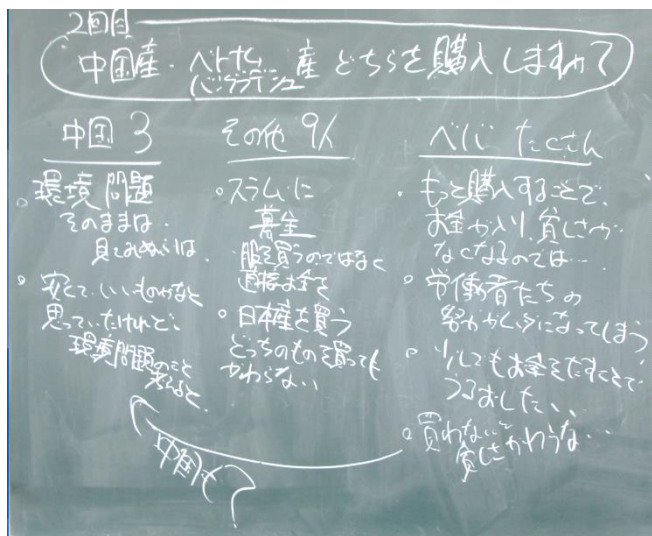 2回目
中国産・ベトナム 産 どちらを購入しますか?
バングラデシュ
中国 3
。環境問題
そのままは..
見てみぬふりは..
。安くていいものかなと
思っていたけれど、
環境問題のこと
考えると、
中国も?
その他 9人
。スラムに
募金
服を買うのではなく
直接お金を
。日本産を買う
どっちのものを買っても
かわらない
ベ/バ たくさん
・もっと購入することで、
お金が入り、貧しさが
なくなるのでは…
。労働者たちの
努力が になってしまう
。少しでもお金をだすことで
うるおしたい..
。買わないと
貧しさかわらない..